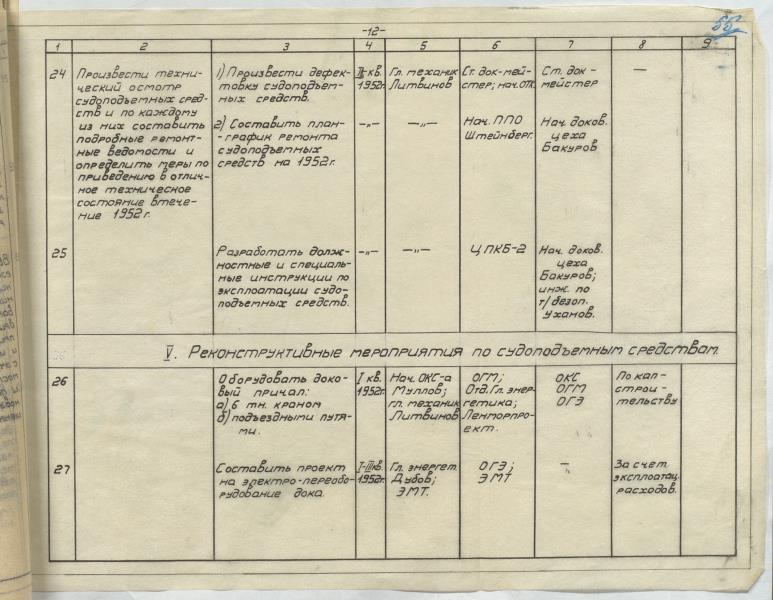 -12-
55
1 2 3 4 5 6 7 8 9
24
Произвести техни-
ческий осмотр
судоподъемных сред-
ств и по каждому
из них составить
подробные ремонт-
ные ведомости и
определить меры по
приведению в отлич-
ное техническое
состояние втече-
ние 1952 г.
1) Произвести дефек-
товку судоподъем-
ных средств.
кв.
1952г.
Гл. механик
Литвинов
Ст. док-мей-
стер; нач. ОТК.
Ст. док-
мейстер
—
2) Составить план-
-график ремонта
судоподъемных
средств на 1952 г.
-„-
-„-
Нач. ППО
Штейнберг.
Нач. доков.
цеха
Бакуров
25
Разработать долж-
ностные и специаль-
ные инструкции по
эксплоатации судо-
подъемных средств.
-„-
-„-
ЦПКБ-2
Нач. доков.
цеха
Бакуров;
инж. по
т/безоп.
Уханов.
V. Реконструктивные мероприятия по судоподъемным средствам
26
Оборудовать доко-
вый причал:
а) 6 тн. краном
б) подъездными путя-
ми.
I кв.
1952г.
Нач. ОКС-а
Муллов;
гл. механик
Литвинов
ОГМ;
Отд. Гл. энер-
гетика;
Ленморпро-
ект.
ОКС
ОГМ
ОГЭ
По кап-
строи-
тельству
27
Составить проект
на электро-переобо-
рудование дока.
I-IIIкв.
1952г.
Гл. энергет.
Дубов;
ЭМТ.
ОГЭ;
ЭМТ
—
За счет
эксплоатац.
расходов.